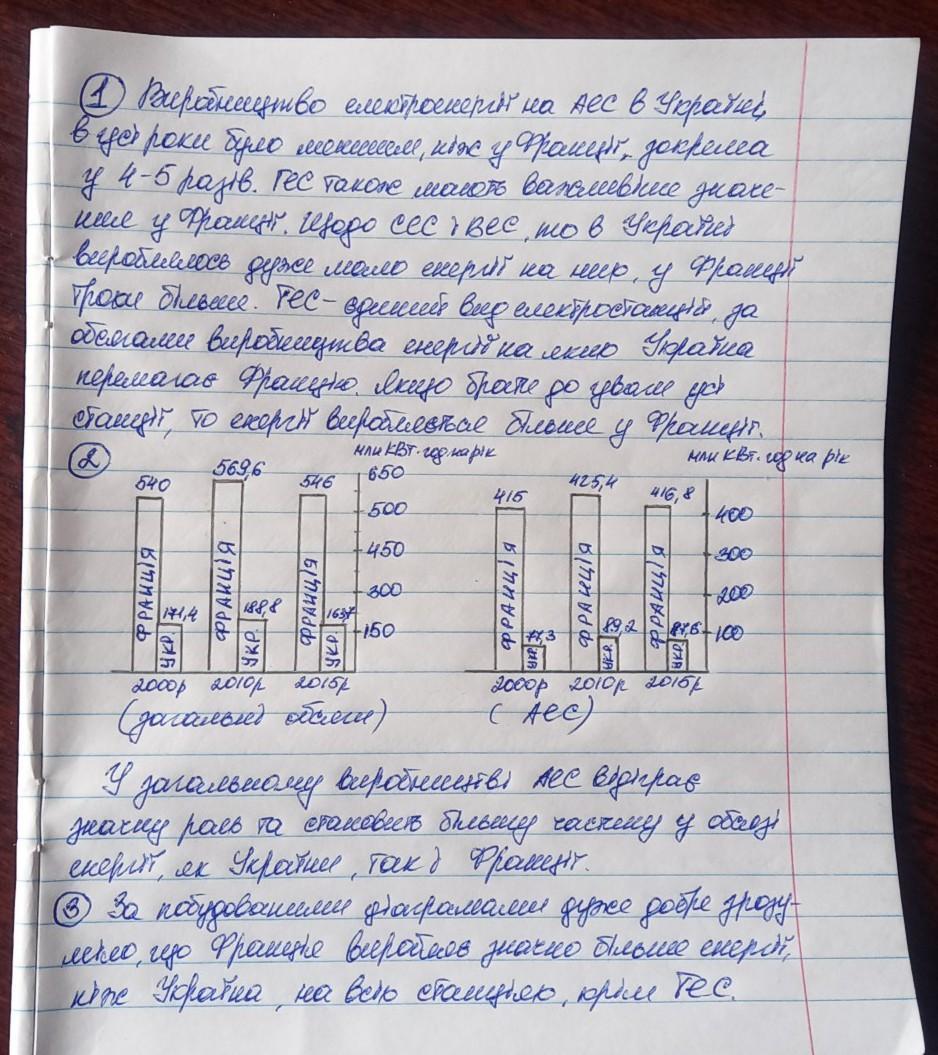 1 Виробництво електроенергії на АЕС в Україні,
в усі роки було меншим, ніж у Франції, зокрема
у 4-5 разів. ГЕС також мають важливіше значе-
ння у Франції. Щодо СЕС і ВЕС, то в Україні
вироблялось дуже мало енергії на них, у Франції
трохи більше. ТЕС - єдиний вид електростанцій, за
обсягами виробництва енергії на якою Україна
перемагає Францію. Якщо брати до уваги усі
станції, то енергії виробляється більше у Франції.
2
млн кВт·год на рік
540 569,6 546
650
500
450
300
150
ФРАНЦІЯ УКР. ФРАНЦІЯ УКР. ФРАНЦІЯ УКР.
171,4 188,8 163,7
2000р 2010р 2015р
(загальні обсяги)
млн кВт·год на рік
415 425,4 416,8
400
300
200
100
ФРАНЦІЯ УКР. ФРАНЦІЯ УКР. ФРАНЦІЯ УКР.
77,3 89,2 87,6
2000р 2010р 2015р
(АЕС)
У загальному виробництві АЕС відіграє
значну роль та становить більшу частину у обсязі
енергії, як України, так і Франції.
3 За побудованими діаграмами дуже добре зрозу-
міло, що Франція виробляє значно більше енергії,
ніж Україна, на всіх станціях, крім ТЕС.